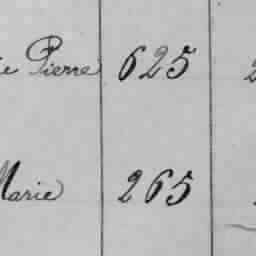 Pierre 625
Marie 265